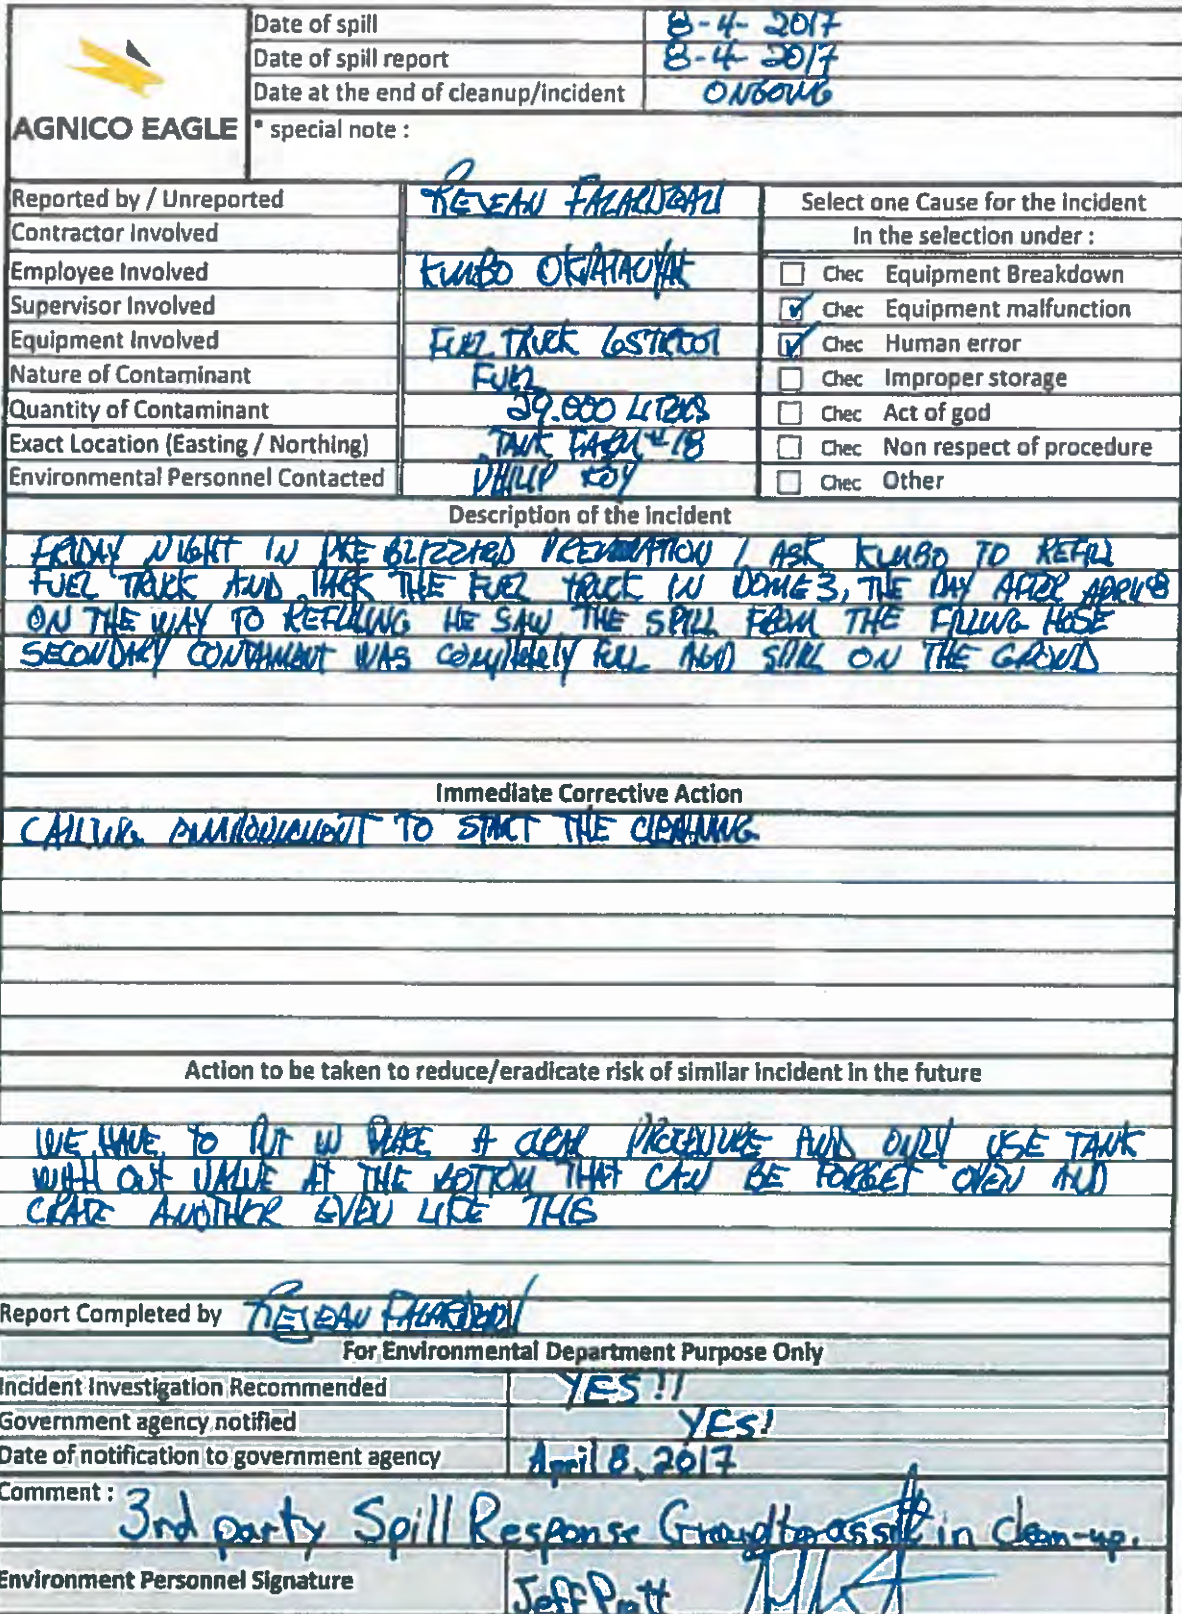 AGNICO EAGLE
Date of spill 8-4-2017
Date of spill report 8-4-2017
Date at the end of cleanup/incident ONGOING
* special note :
Reported by / Unreported
Contractor Involved
Employee Involved KUMBO
Supervisor Involved
Equipment Involved FUEL TRUCK
Nature of Contaminant FUEL
Quantity of Contaminant 29.000 LITERS
Exact Location (Easting / Northing) TANK FARM #18
Environmental Personnel Contacted PHILIP ROY
Select one Cause for the incident
In the selection under :
Chec Equipment Breakdown
Chec Equipment malfunction
Chec Human error
Chec Improper storage
Chec Act of god
Chec Non respect of procedure
Chec Other
Description of the incident
FRIDAY NIGHT IN PRE BLIZZARD I ASK KUMBO TO REFILL
FUEL TRUCK AND PARK THE FUEL TRUCK IN DOME 3, THE DAY AFTER APRIL 8
ON THE WAY TO REFILLING HE SAW THE SPILL FROM THE FILLING HOSE
SECONDARY CONTAMENT WAS completely FULL AND SPILL ON THE GROUND
Immediate Corrective Action
CALLING TO START THE CLEANING
Action to be taken to reduce/eradicate risk of similar incident in the future
WE HAVE TO PUT IN PLACE A CLEAR PROCEDURE AND ONLY USE TANK
WITH OUT VALVE AT THE BOTTOM THAT CAN BE FORGET OPEN AND
CRATE ANOTHER EVEN LIKE THIS
Report Completed by
For Environmental Department Purpose Only
Incident Investigation Recommended YES !!
Government agency notified YES!
Date of notification to government agency April 8, 2017
Comment : 3rd party Spill Response to assist in clean-up.
Environment Personnel Signature Jeff Pratt